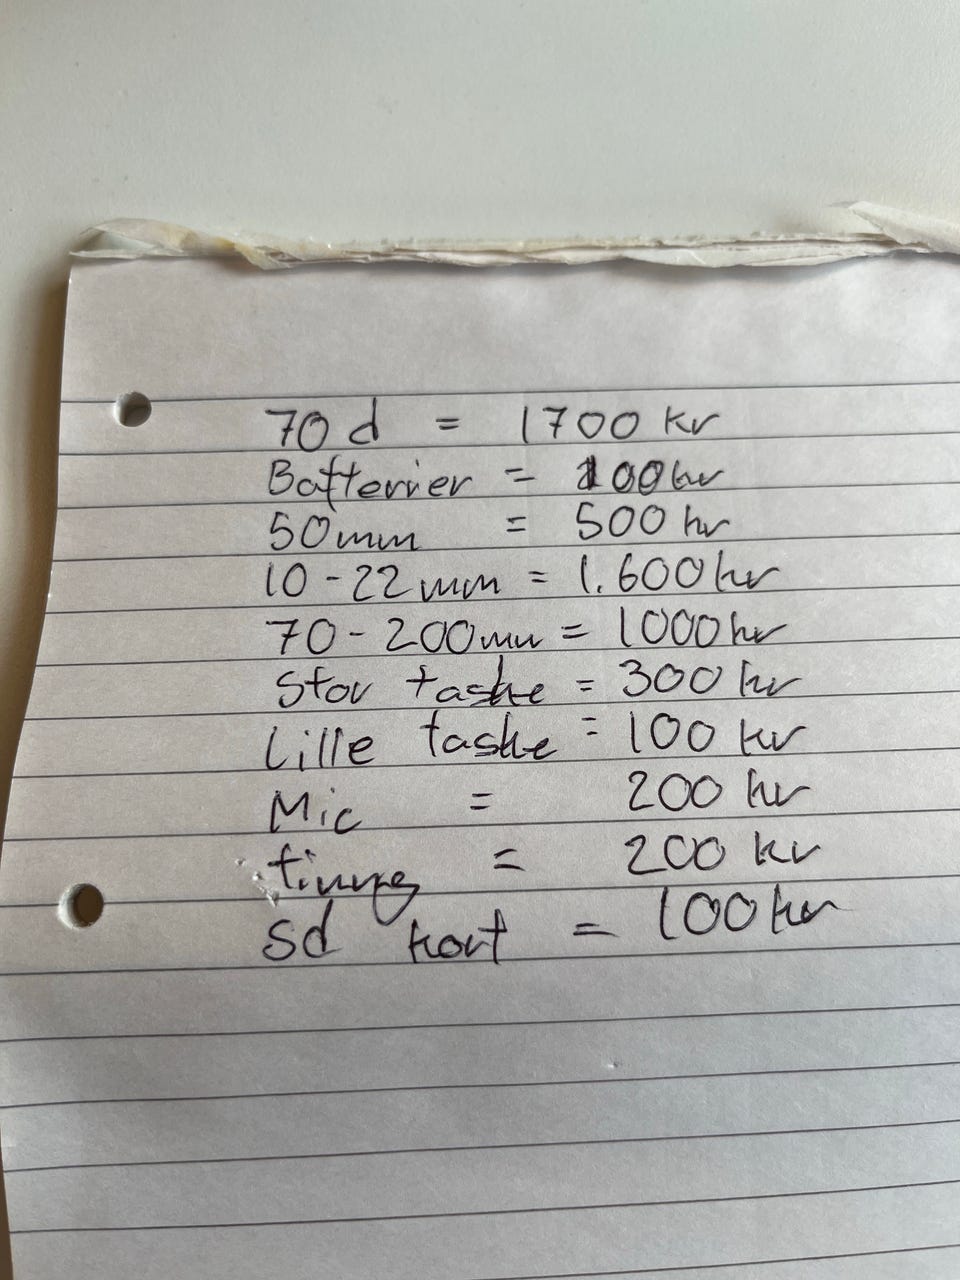 70 d = 1700 kr
Batterier = 100 kr
50mm = 500 kr
10-22 mm = 1.600 kr
70-200mm = 1000 kr
Stor taske = 300 kr
Lille taske = 100 kr
Mic = 200 kr
= 200 kr
Sd kort = 100 kr